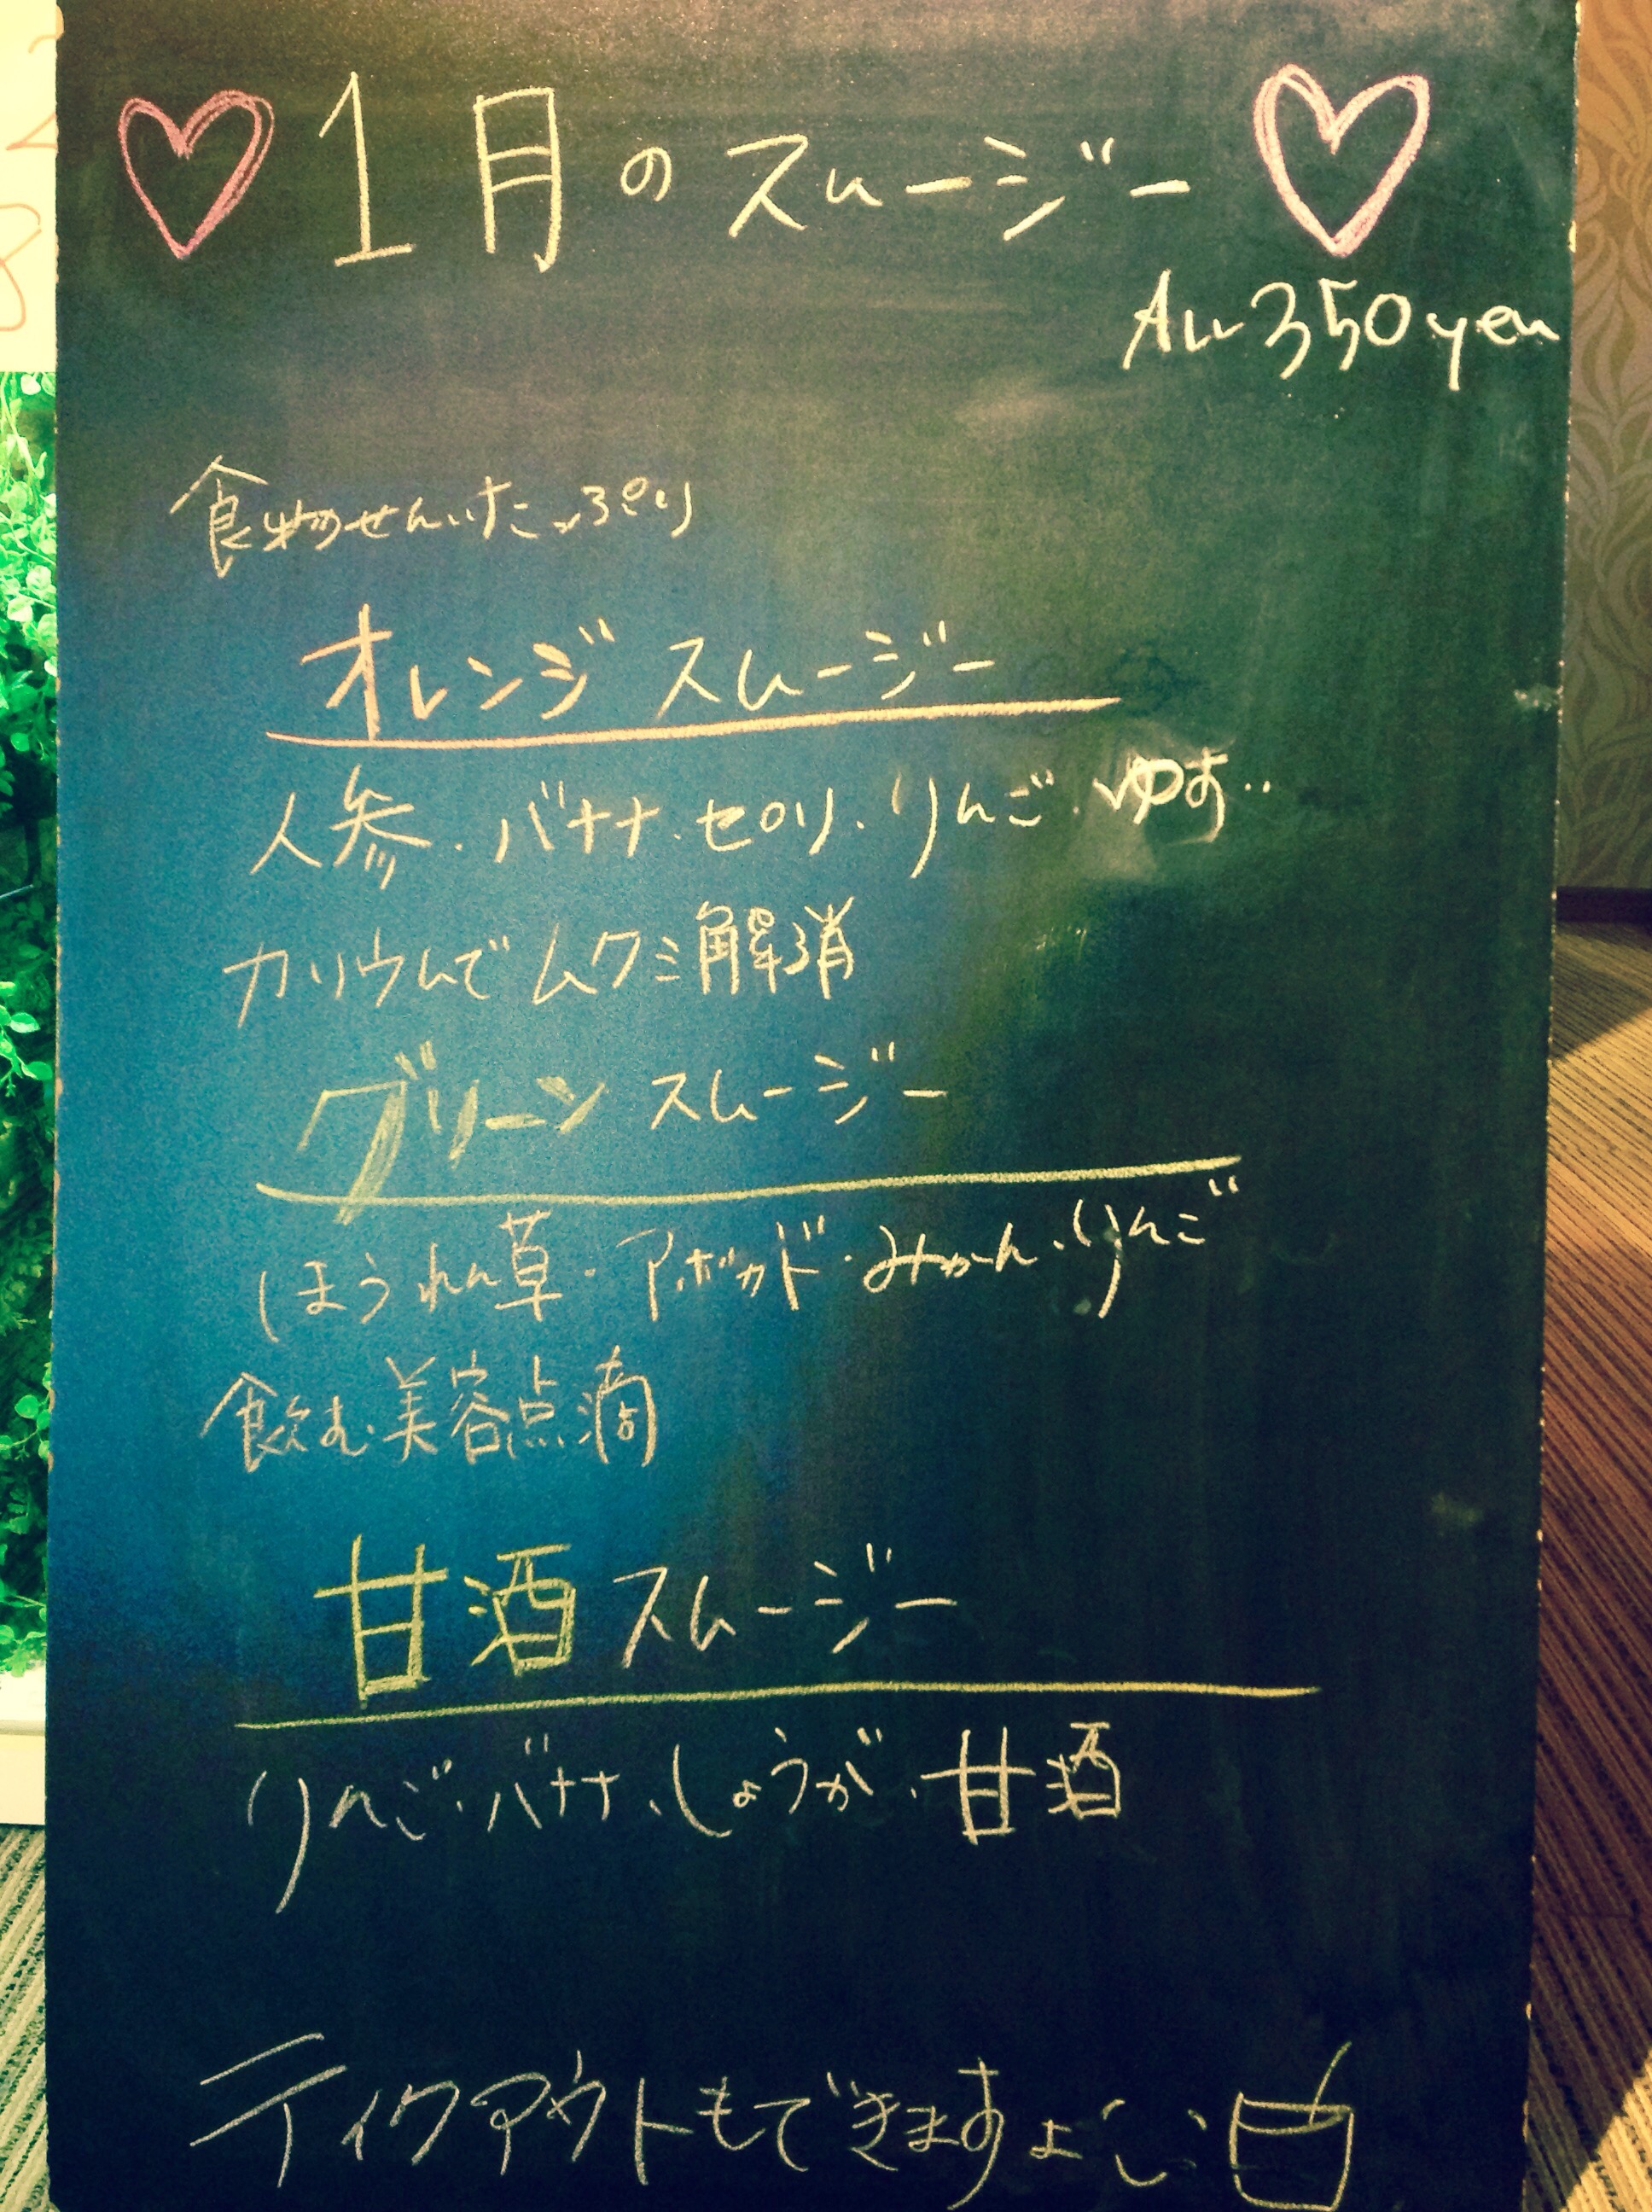 1月のスムージー
All 350yen
食物せんいたっぷり
オレンジスムージー
人参・バナナ・セロリ・りんご・ゆず‥
カリウムでムクミ解消
グリーンスムージー
ほうれん草・アボカド・みかん・りんご
飲む美容点滴
甘酒スムージー
りんご・バナナ・しょうが・甘酒
テイクアウトもできますよ